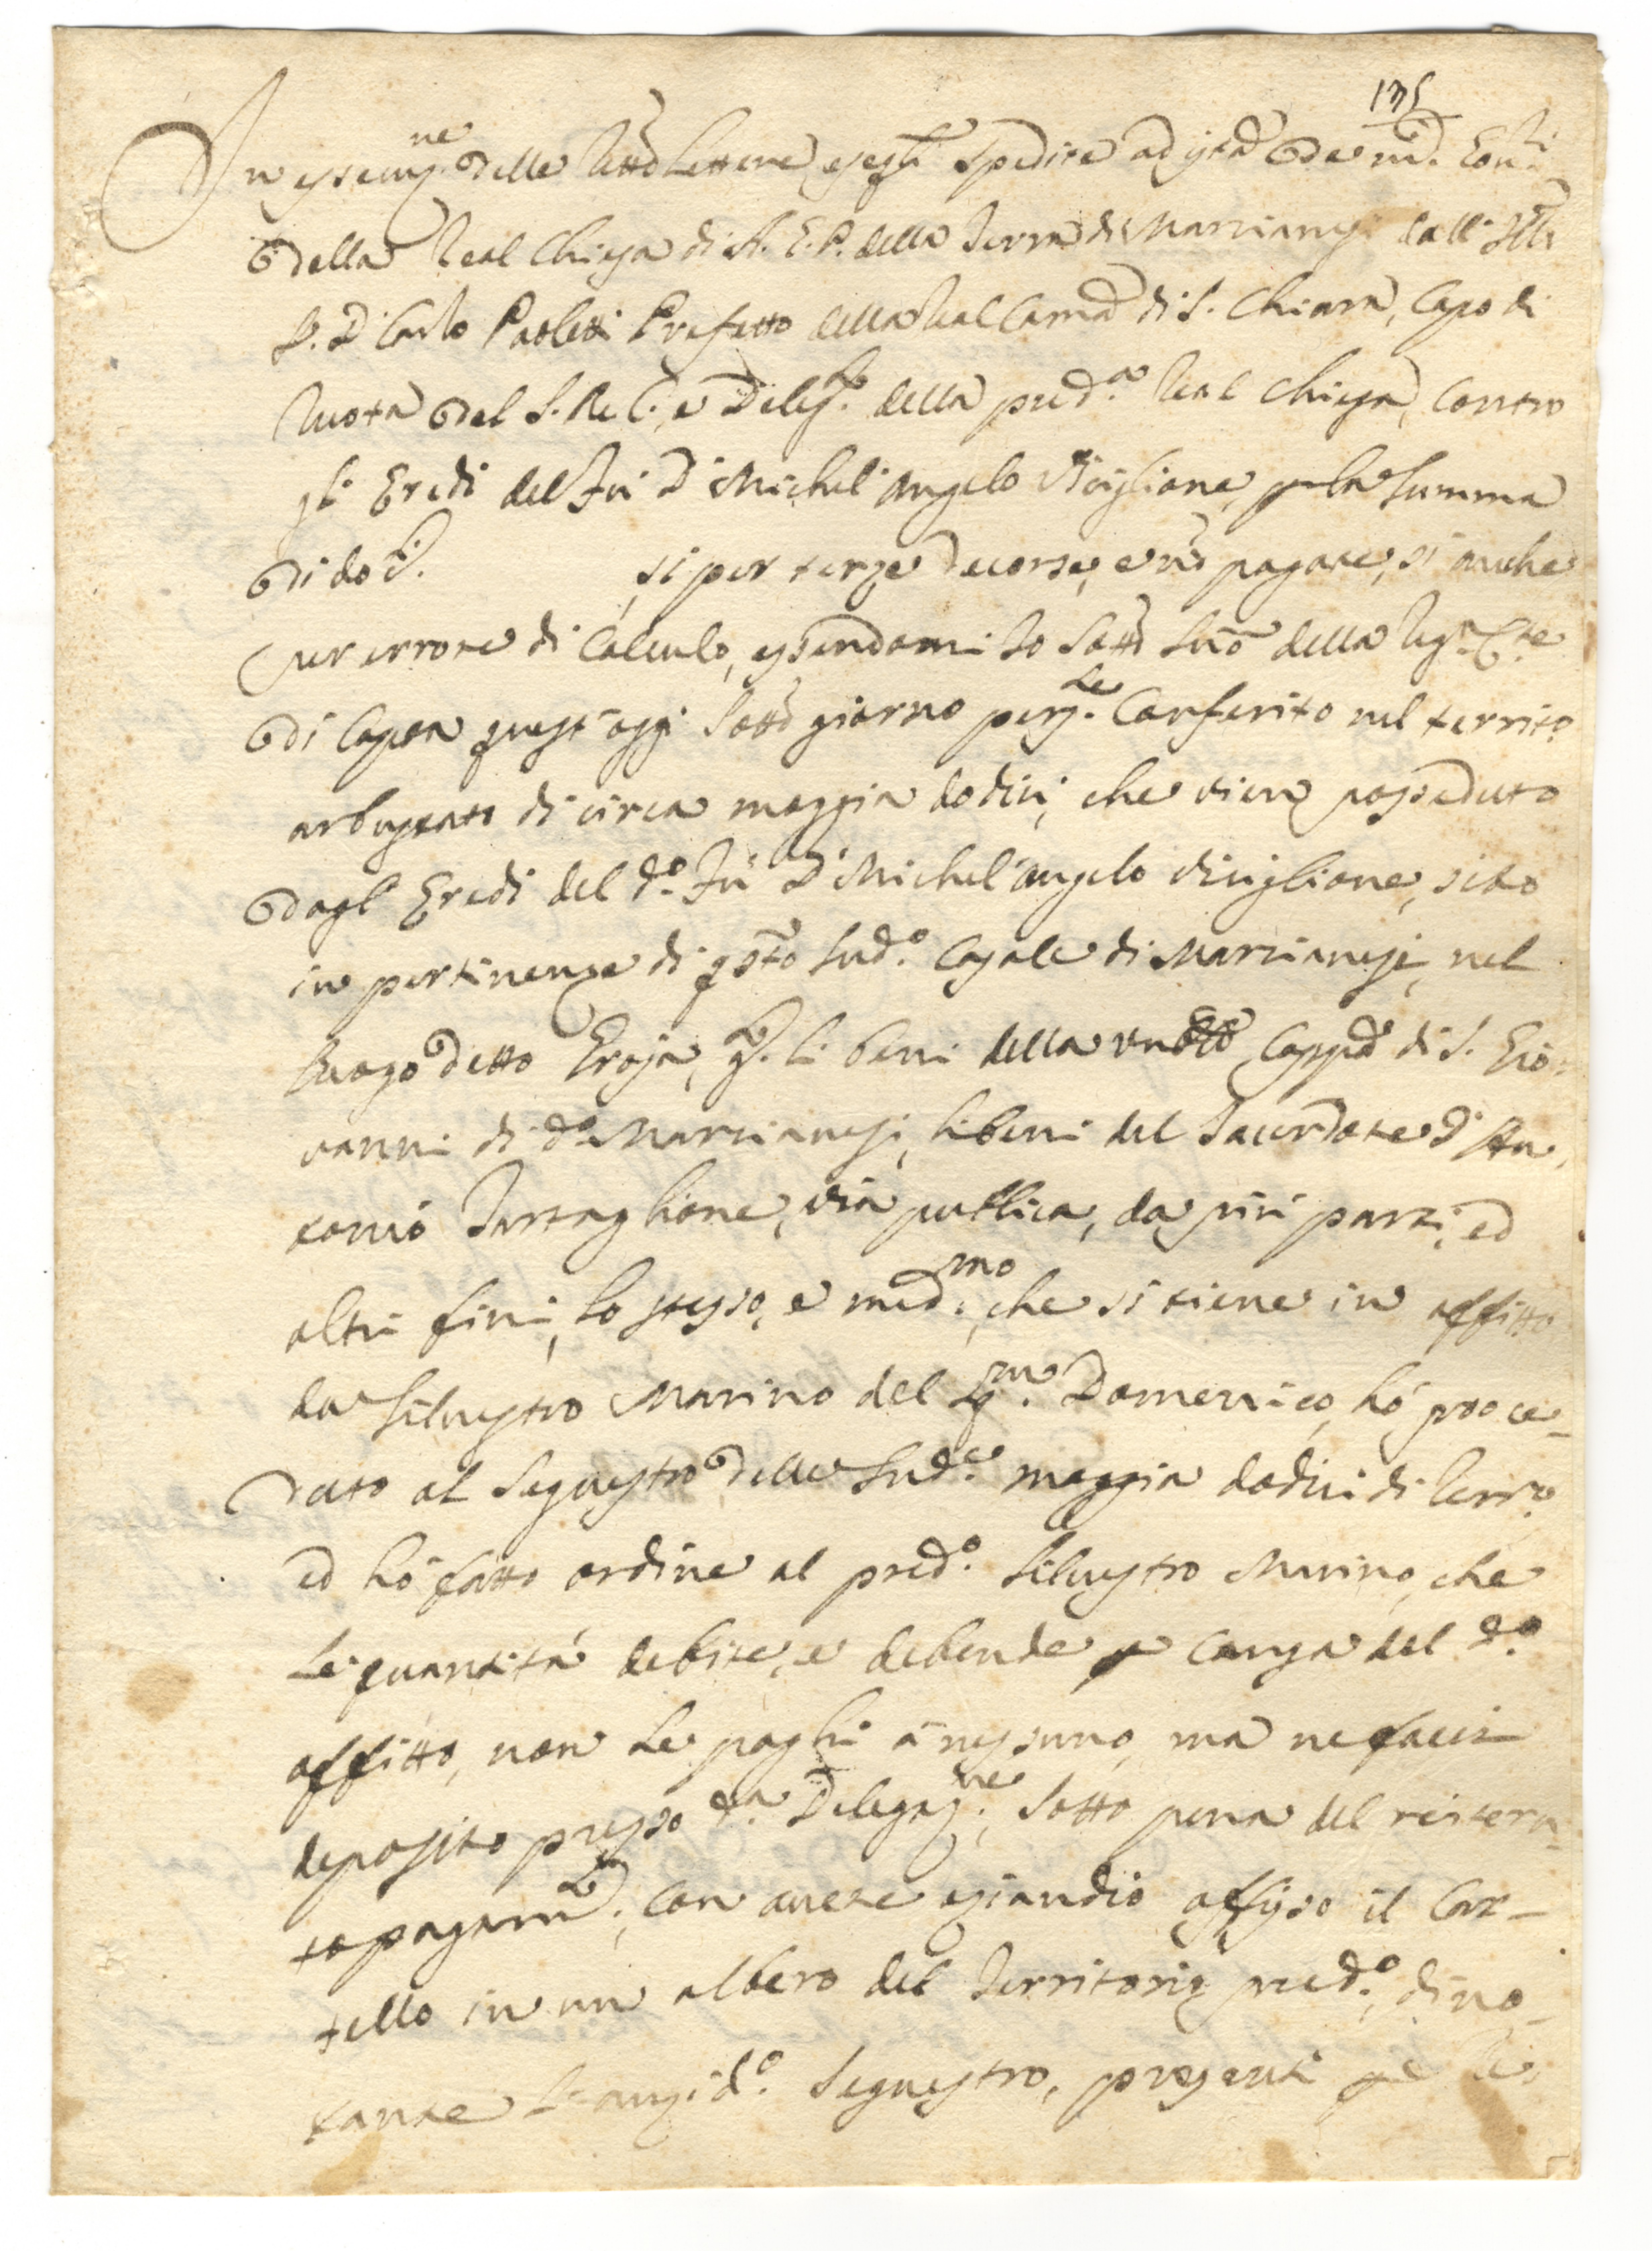 135
In esecuz.ne delle retros.te Lettere esegu.li spedite ad ist.a de m.ci Econ.i
della Real Chiesa di A. G. P. della Terra di Marcianisi dall' Ill.e
S. D. Carlo Paoletti Prefetto della Real Cam.a di S. Chiara, Capo di
Ruota del S. R. C., e Deleg.to della pred.a Real Chiesa, contro
gl' Eredi del fu D. Michel' Angelo Viviglione, per la summa
di doc.ti , si per terze decorse, e nō pagate, si anche
per errore di Calculo, essendomi Io sotto Scrō della Reg.a C.te
di Capua quest' oggi sottō giorno person.le Conferito nel territ.o
arbustato di circa moggia dodici, che viene posseduto
dagl' Eredi del d.o fu D. Michel' Angelo Viviglione, sito
in pertinenze di q̄sto sud.o Casale di Marcianisi, nel
luogo detto Troja, g.ta li beni della Capp.a di S. Gio=
vanni di d.o Marcianisi, li beni del Sacerdote D. An,
tonio Tartaglione, via publica, da più parti, ed
altri fini, lo stesso, e med.mo, che si tiene in affitto
da Silvestro Marino del q.m Domenico, hò proce_
duto al Sequestro delle sud.e moggia dodici di terr.o
ed hò fatto ordine al pred.o Silvestro Marino, che
le quantità debite, e debende p causa del d.o
affitto, non le paghi a nessuno, ma ne facci
deposito presso d.a Delegaz.ne, sotto pena del reitera_
to pagam.to, con avere eziandio affisso il Car_
tello in un albero del Territorio pred.o, dino_
tante l' anzid.o Sequestro, presenti pe Te,